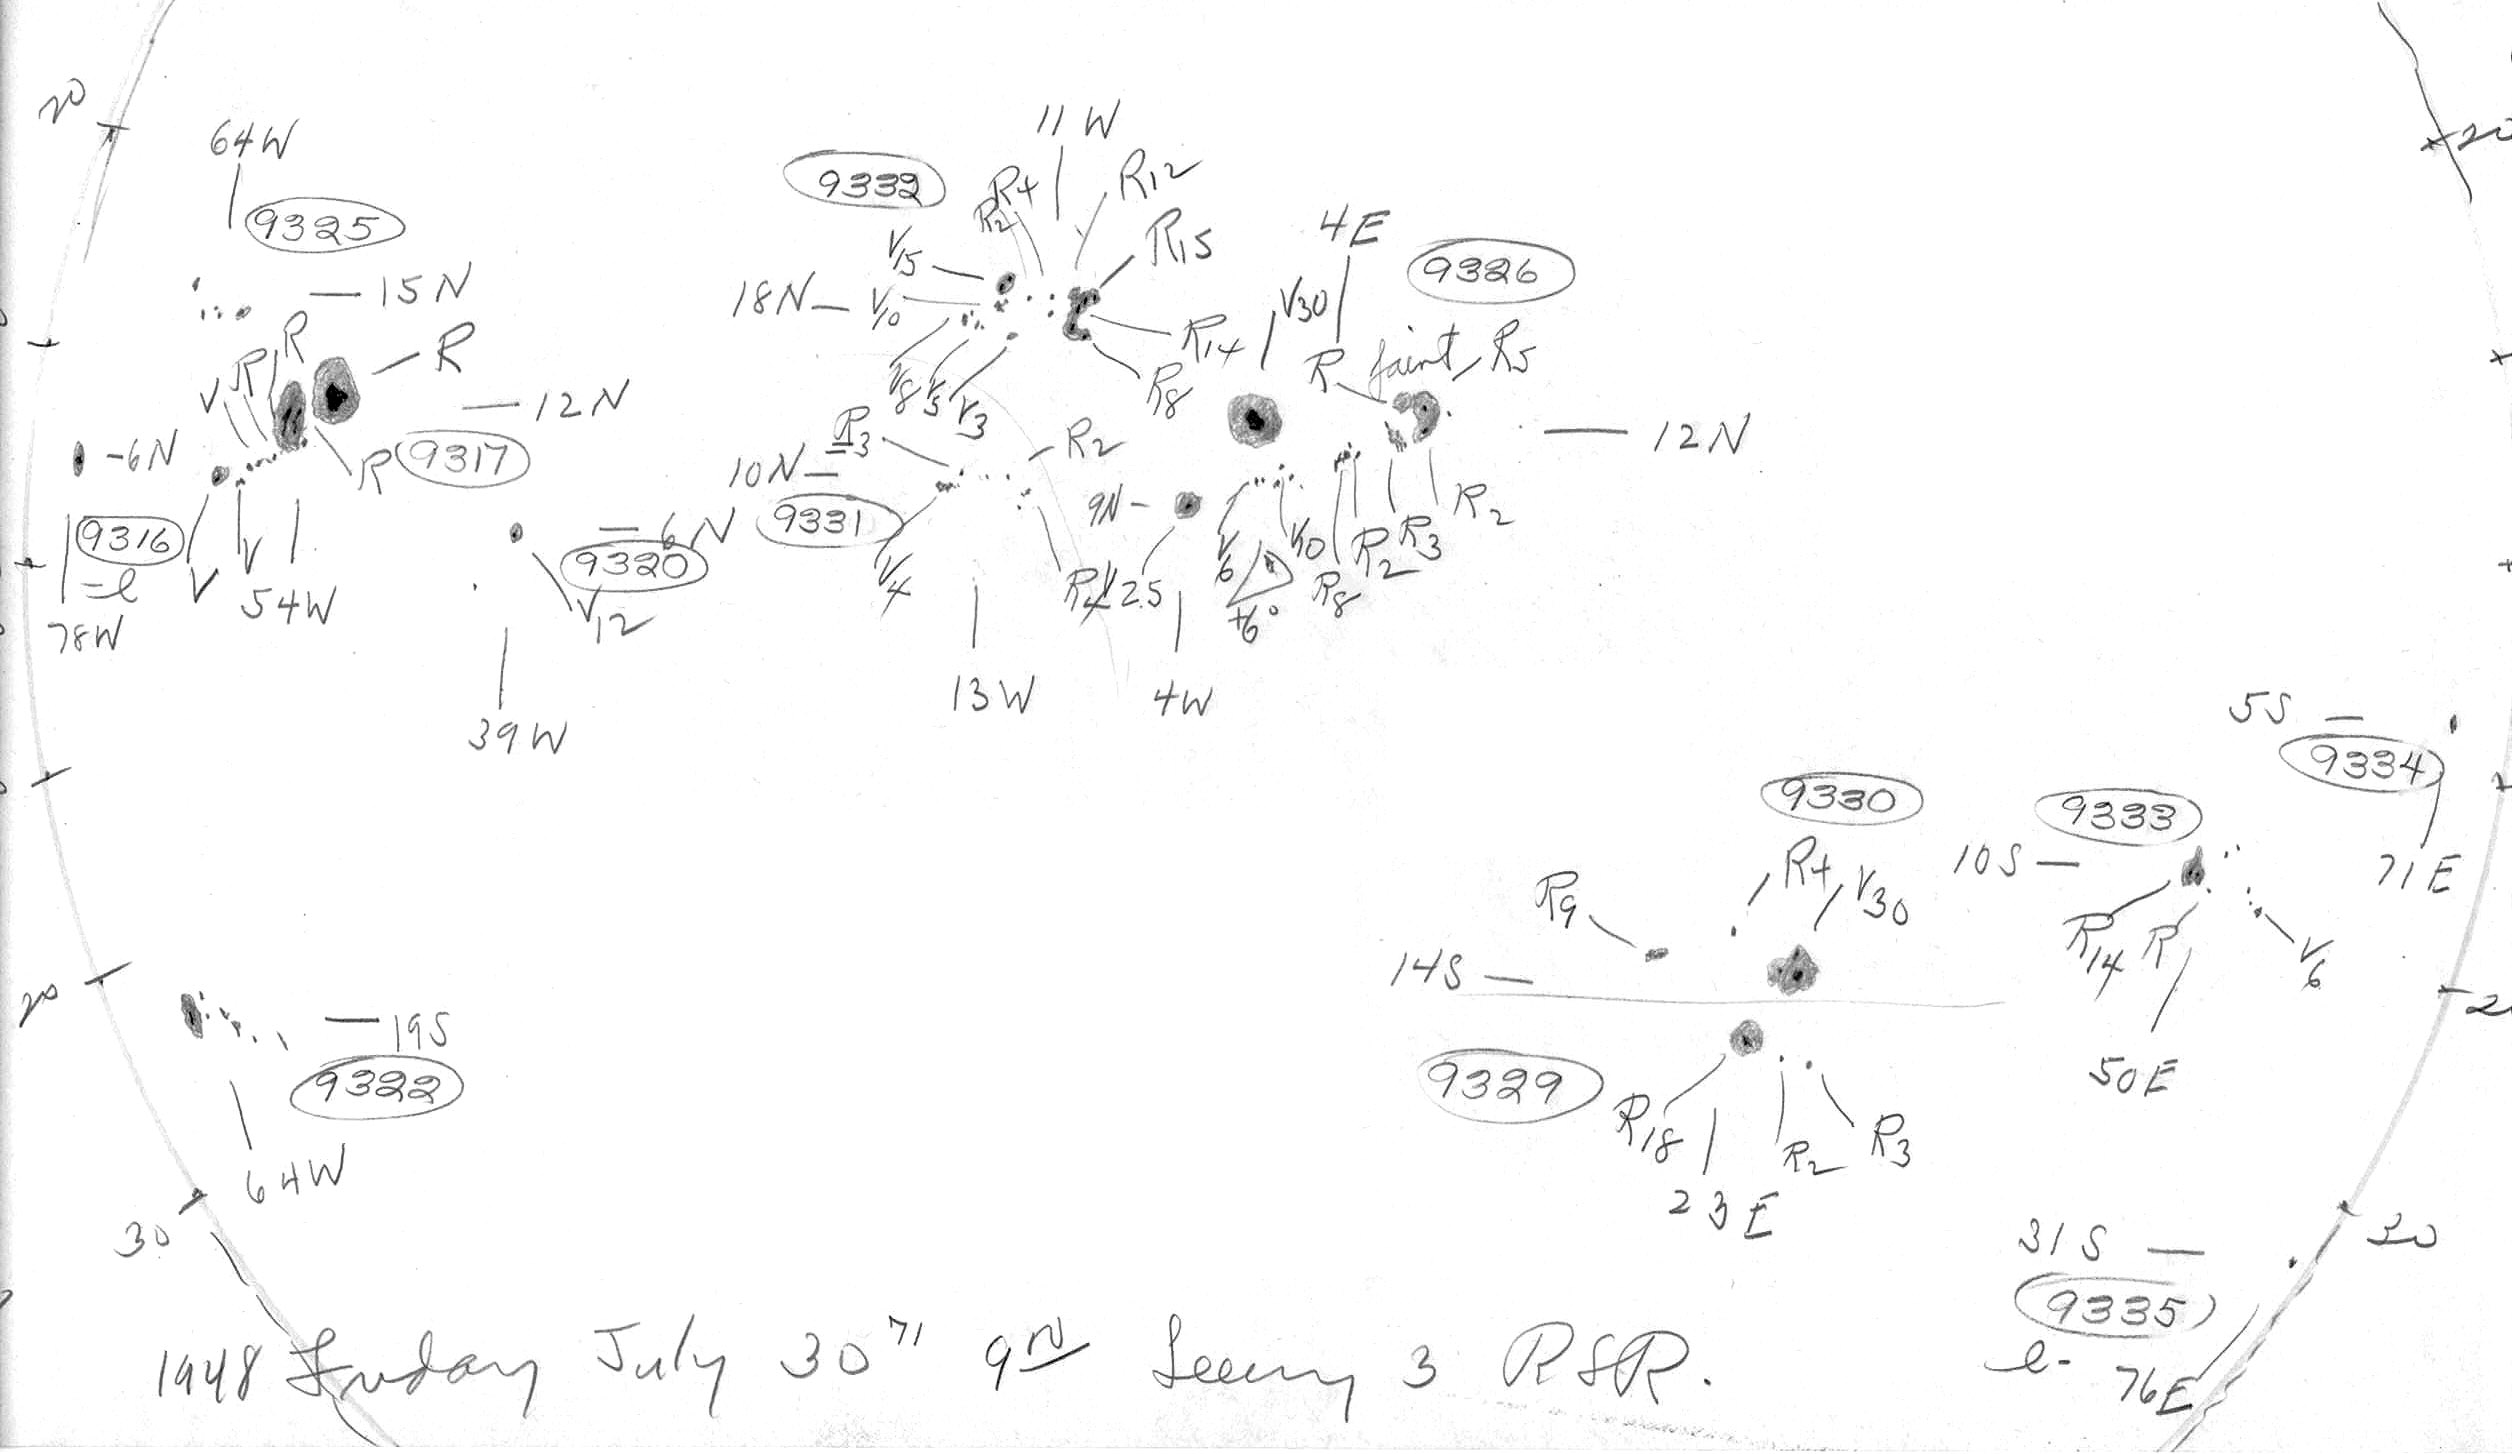 20
20
64W
9325
15N
R
R
R
V
12N
6N
R
9317
9316
e
V
V
54W
78W
6N
9320
V12
39W
11W
9332
R4
R2
R12
R15
V15
18N
V10
V8
V5
V3
R14
R8
4E
9326
V30
R faint
R5
12N
R3
R2
10N
9331
V4
R4
13W
9N
V25
4W
V6
V10
+6°
R8
R2
R3
R2
5S
9334
71E
9330
R4
V30
R9
14S
9333
10S
R14
R
V6
50E
9329
R18
R2
R3
23E
20
2
19S
9322
64W
30
30
31S
9335
e- 76E
1948 Friday July 30 71 9N Seeing 3 RSR.